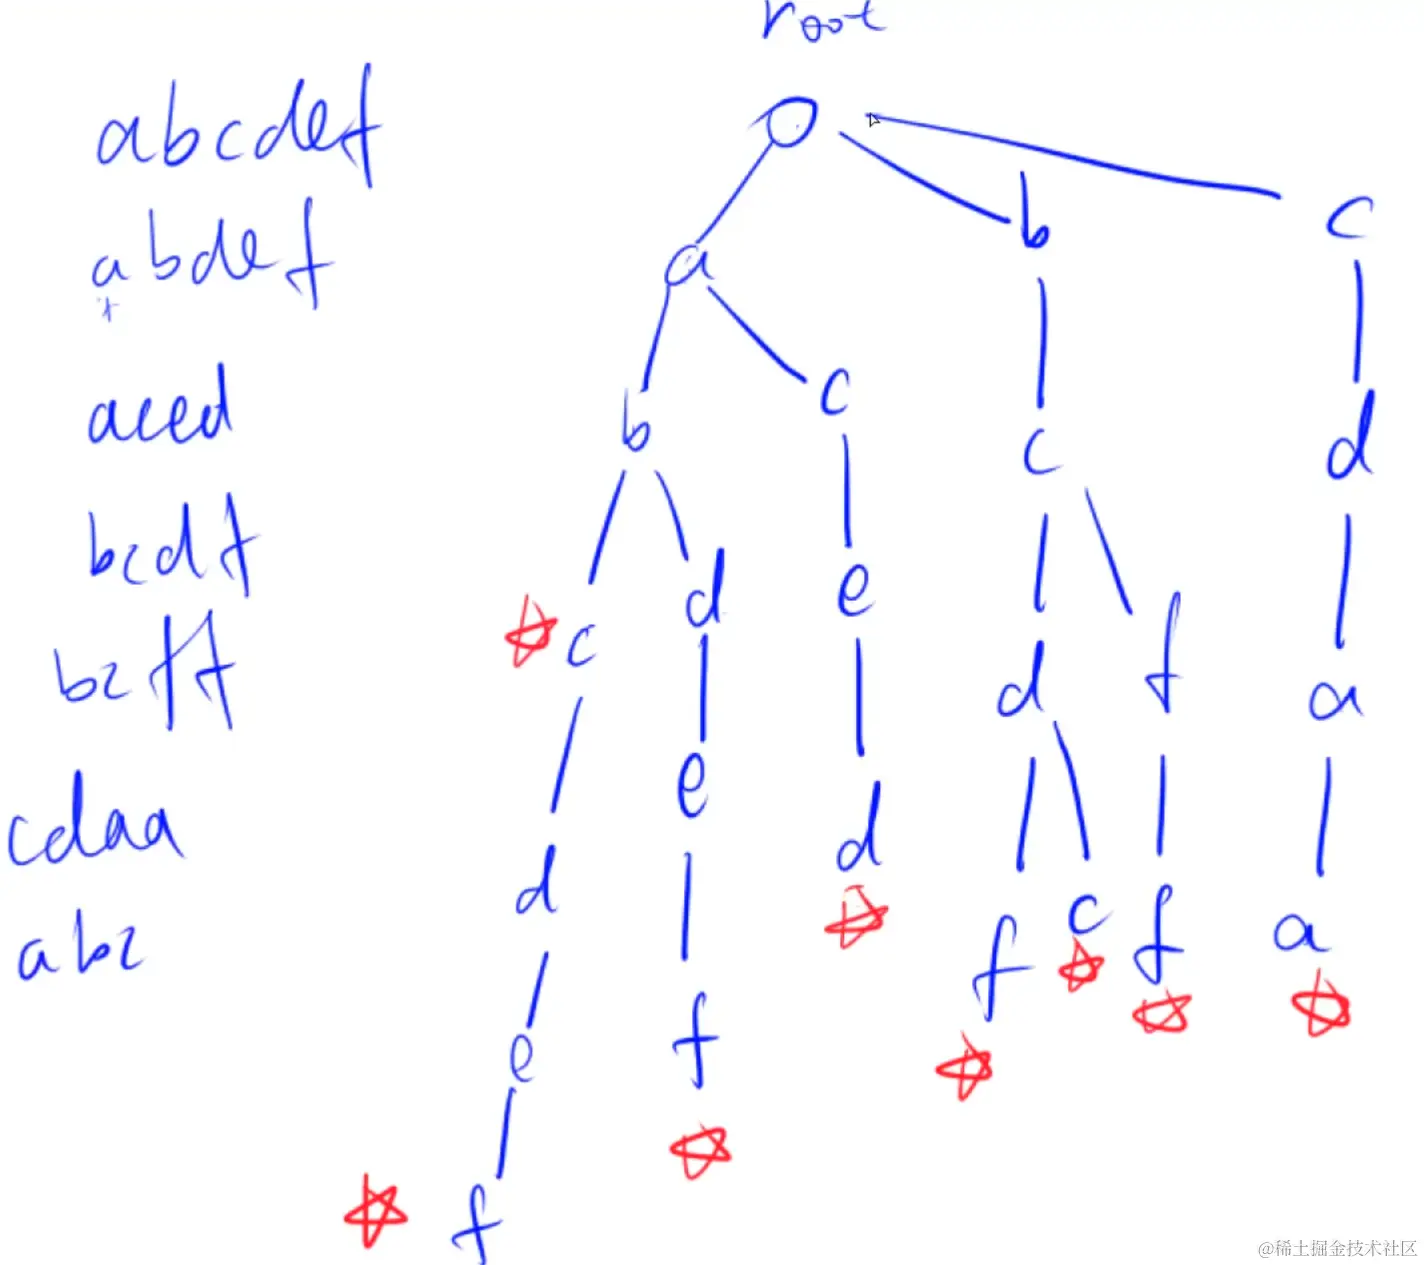 root
abcdef
abdef
aced
bcdf
bcff
cdaa
abc
a b c
b c c d
c d e d f a
d e d f c f a
e f
f
@稀土掘金技术社区